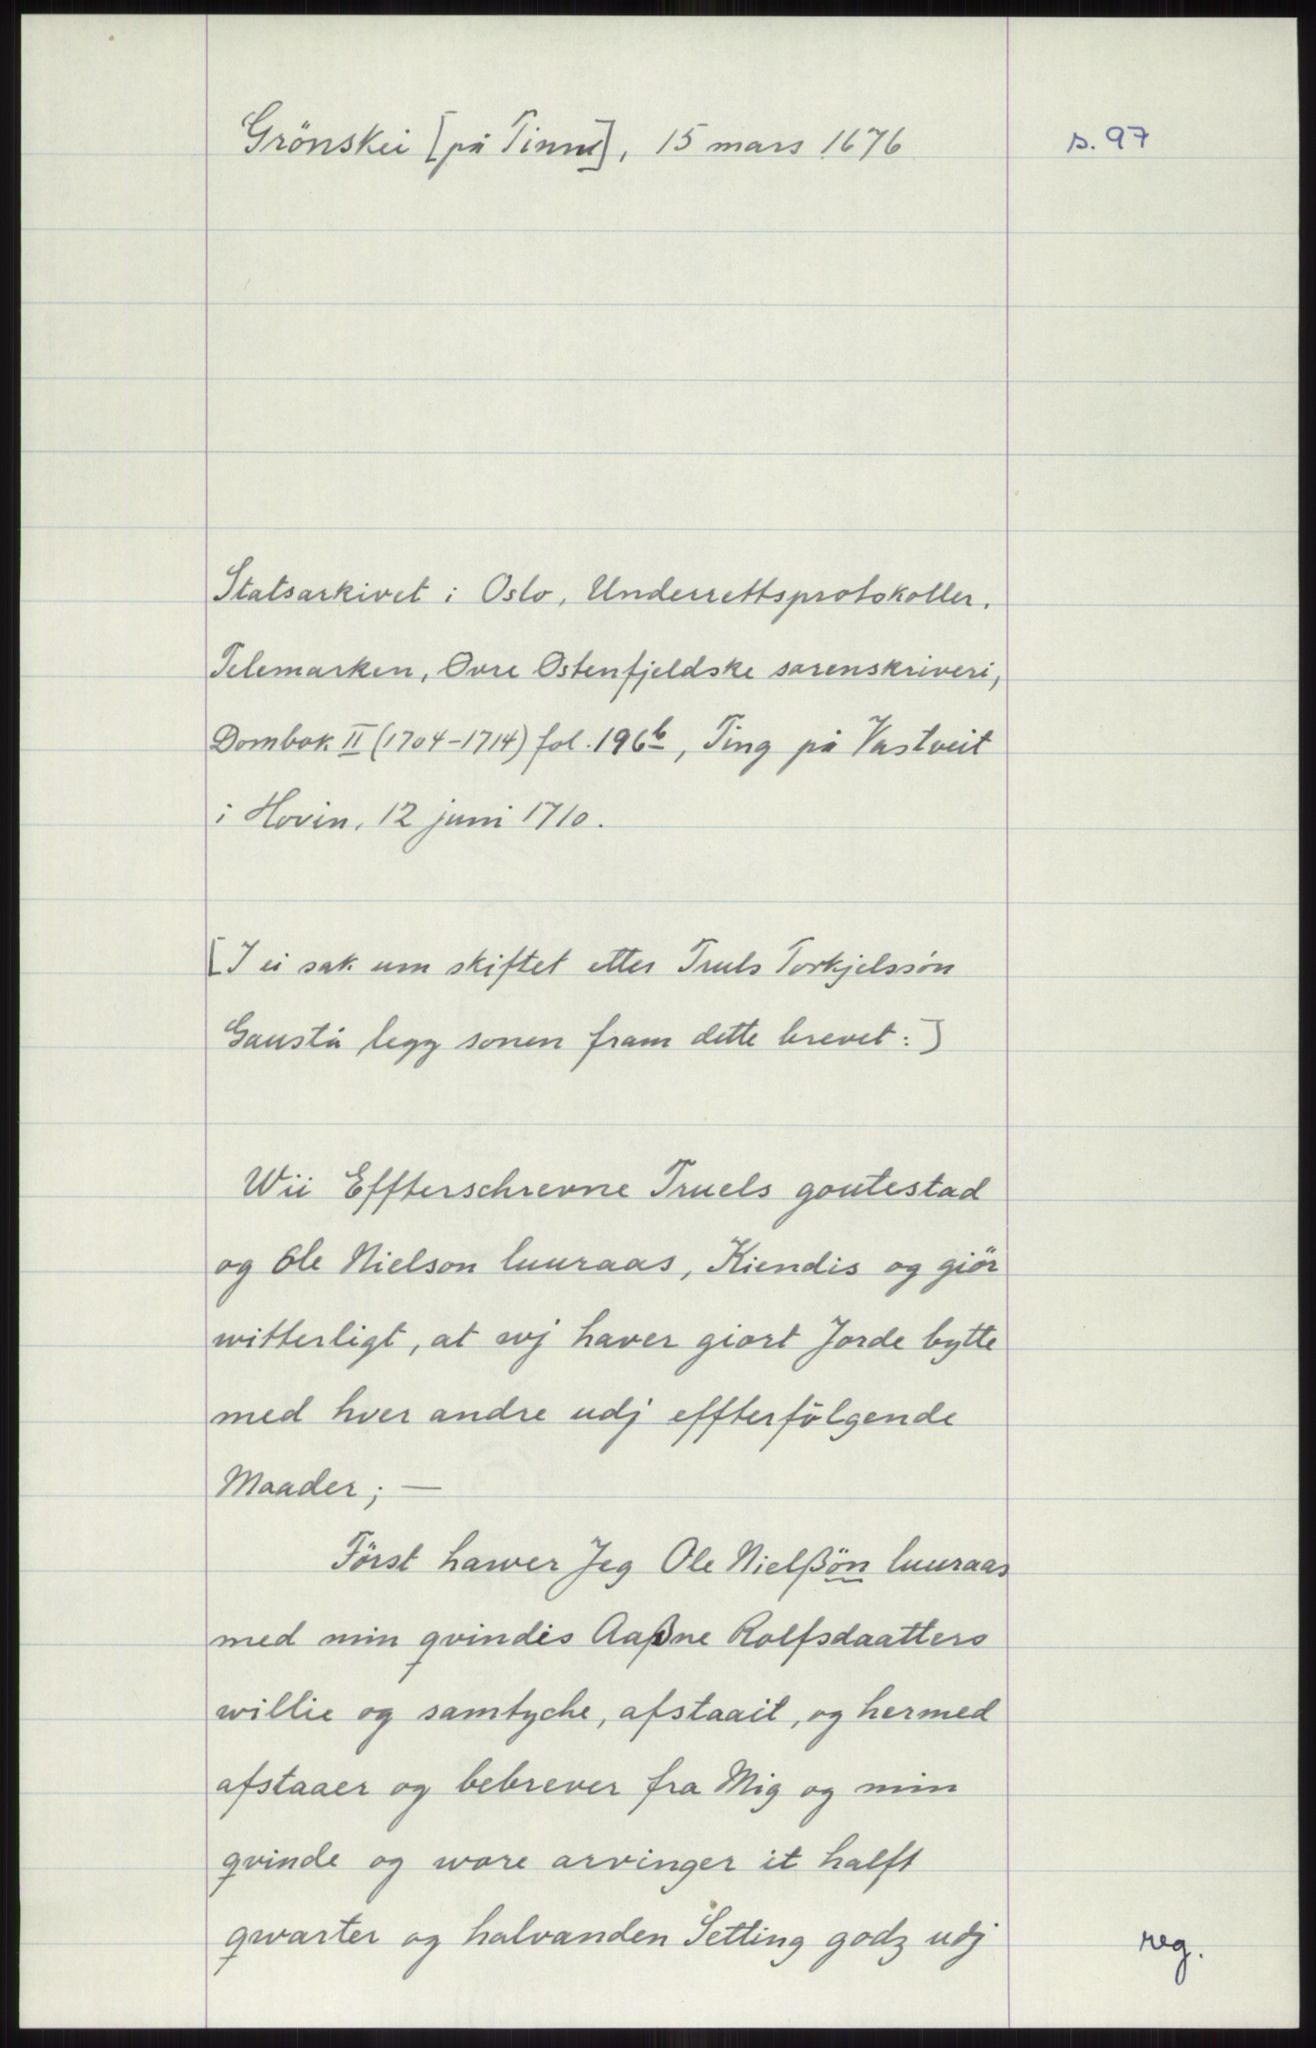 Grönskei [på Tinne], 15 mars 1676
s. 97
Statsarkivet i Oslo, Underrettsprotokoller.
Telemarken, Øvre Østenfjeldske sorenskriveri,
Dombok II (1704-1714) fol. 196b, Ting på Vastveit
i Hovin, 12 juni 1710.
[I ei sak um skiftet etter Truls Torkjelssön
Gaustå legg sonen fram dette brevet:]
Wii Effterschrevne Truels goutestad
og Ole Nielson luuraas, Kiendis og giör
witterligt, at wj haver giort Jorde bytte
med hver andre udj effterfölgende
Maader; —
Först hawer Jeg Ole Nielßön luuraas
med min qvindis Aaßne Rolfsdaatters
willie og samtyche, afstaait, og hermed
afstaaer og bebrever fra Mig og min
qvinde og wore arvinger it halft
qwarter og halvanden Setting godz udj
reg.